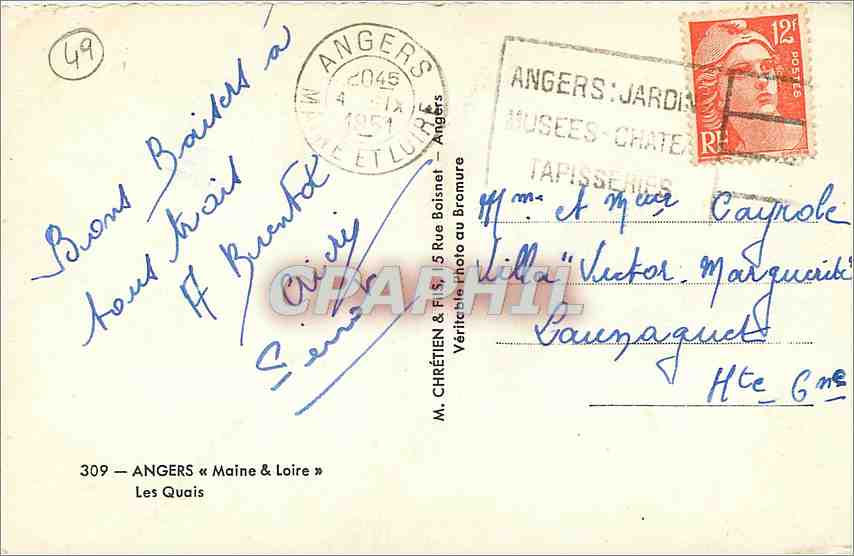 49
ANGERS
2045
4 - IX
1951
MAINE ET LOIRE
ANGERS: JARDIN
MUSEES - CHATEA
TAPISSERIES
12F
POSTES
RF
Bons Baisers à
tous trois
A Bientot
M. CHRÉTIEN & FILS, 5 Rue Boisnet — Angers
Véritable Photo au Bromure
CPAPHIL
Mme et Meur Cayrole
Villa "Victor Marguerite"
Launaguet
Hte Gne
309 — ANGERS « Maine & Loire »
Les Quais